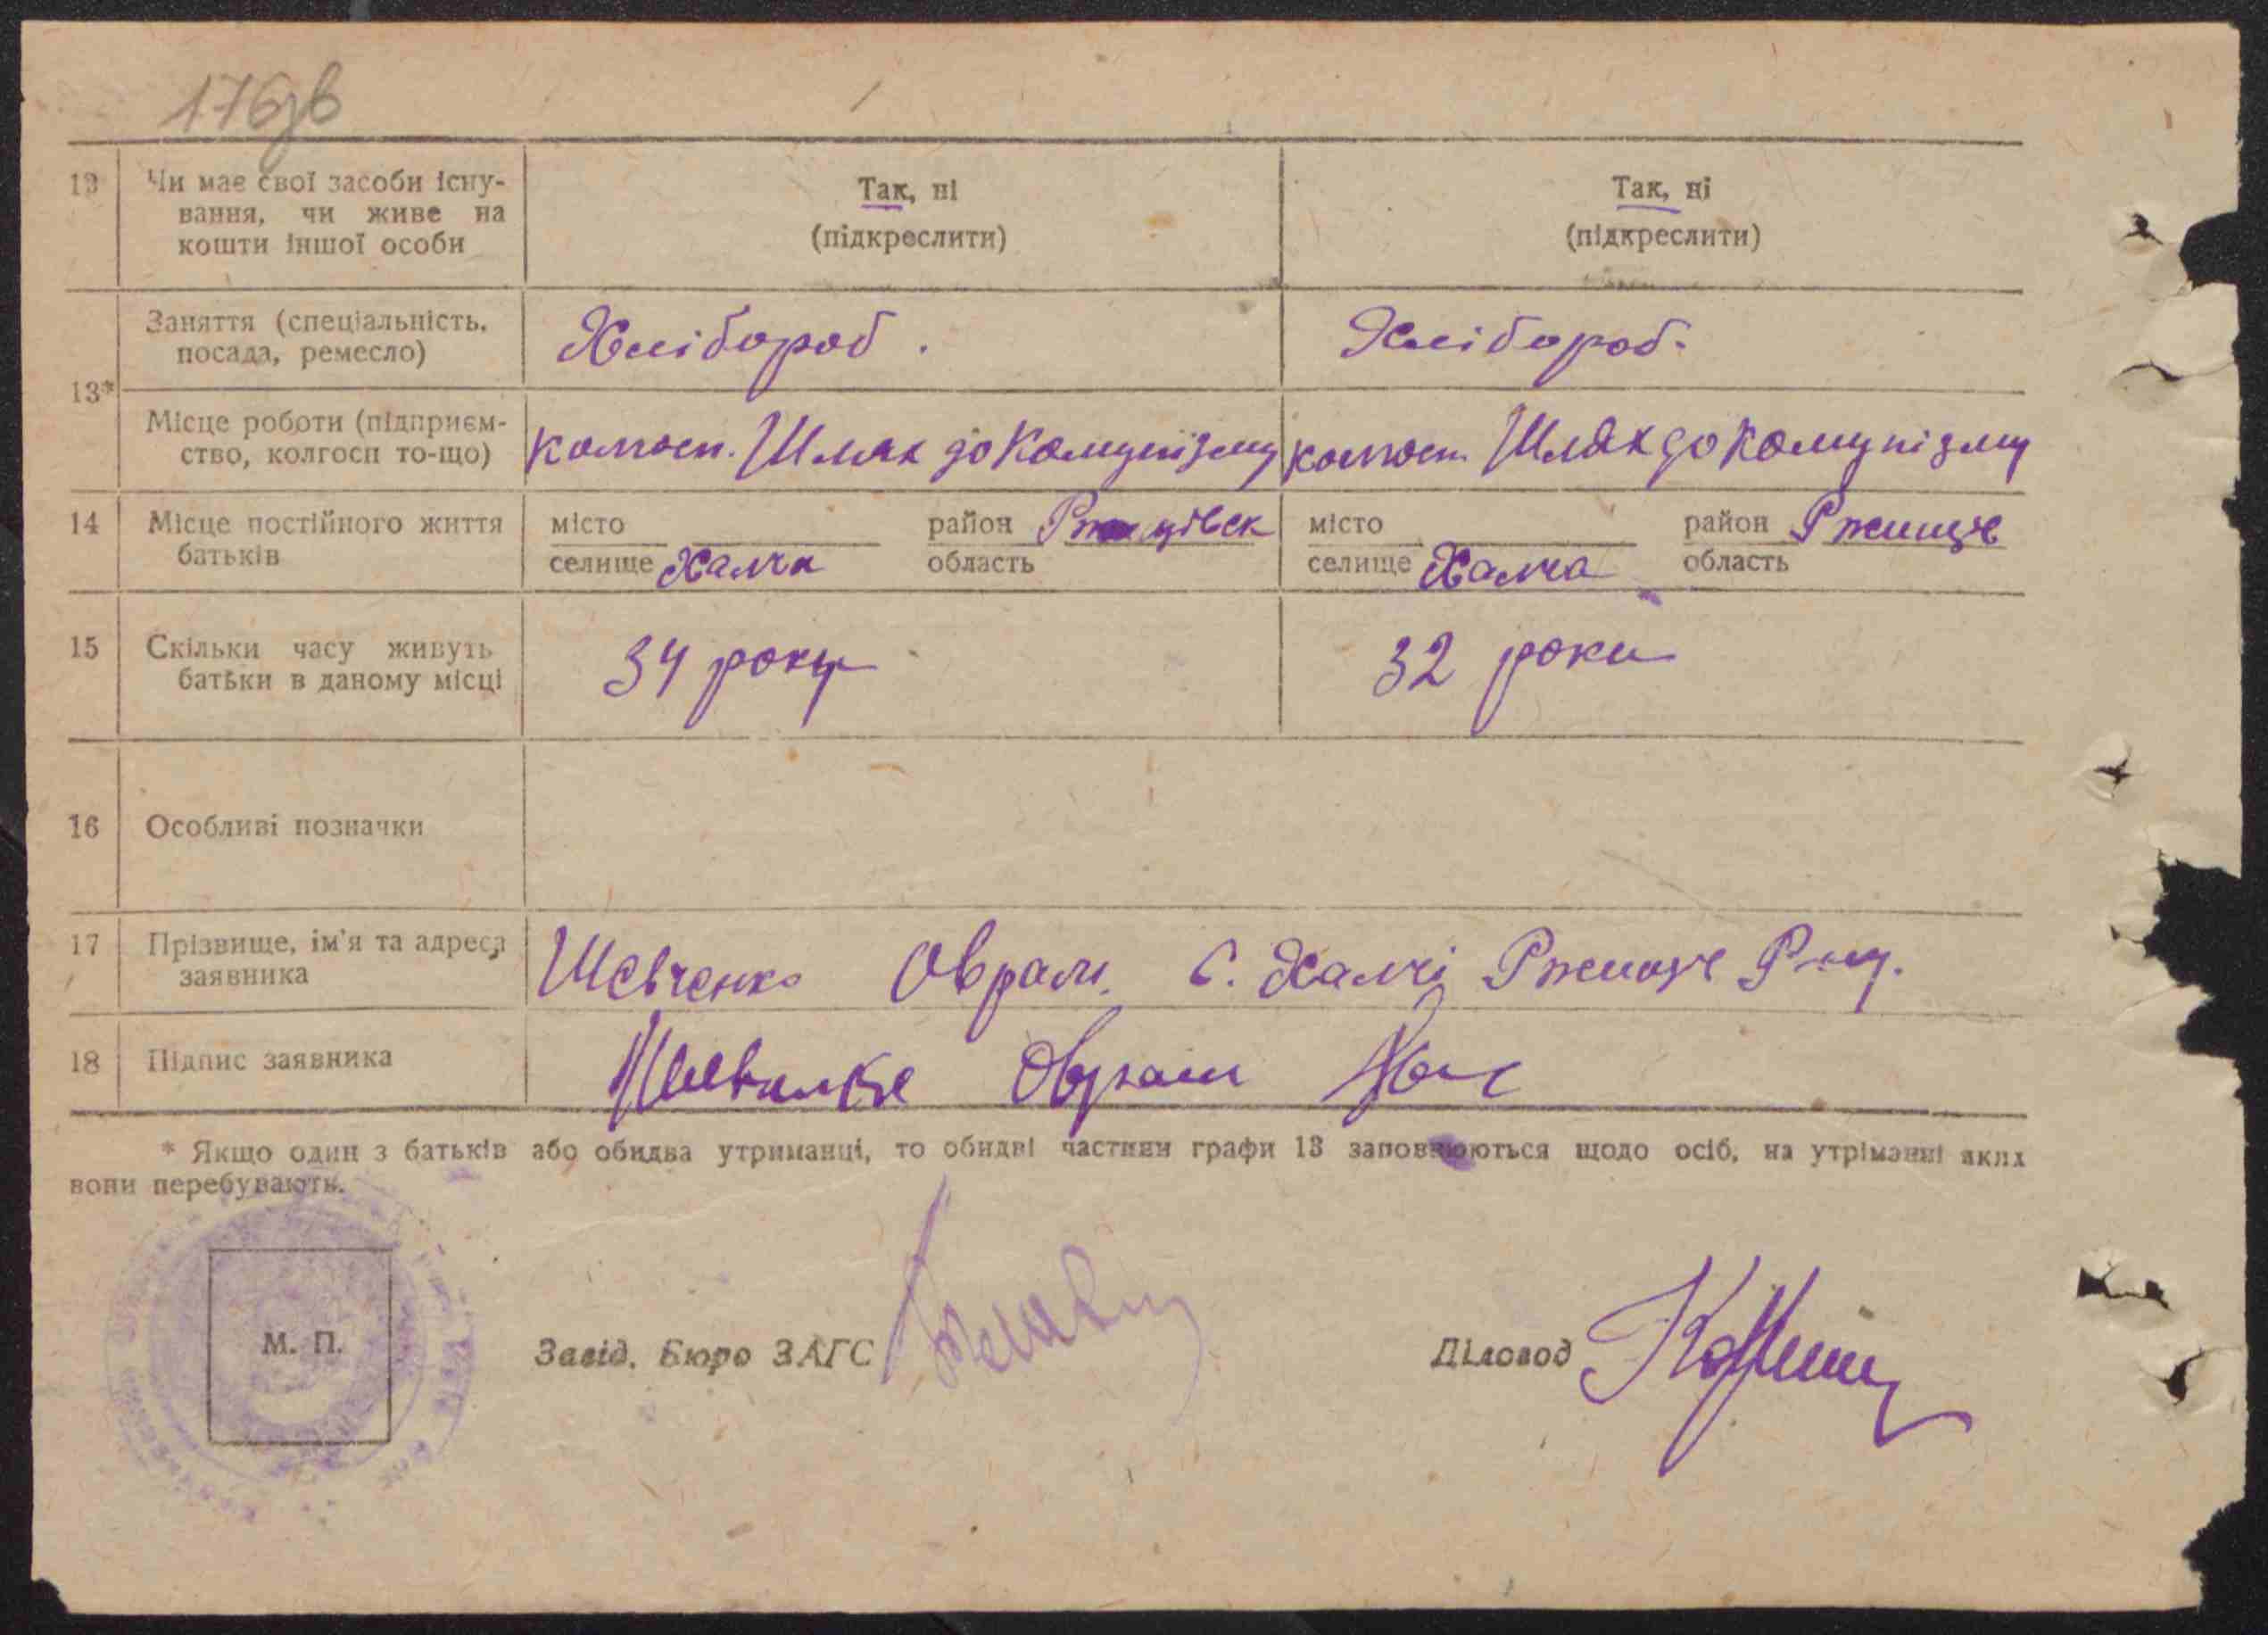 176зв
13 Чи має свої засоби існу-
вання, чи живе на
кошти іншої особи
Так, ні
(підкреслити)
Так, ні
(підкреслити)
13*
Заняття (спеціальність,
посада, ремесло)
Хлібороб.
Хлібороб.
Місце роботи (підприєм-
ство, колгосп то-що)
Шлях до Комунізму
Шлях до Комунізму
14 Місце постійного життя
батьків
місто район
селище Халча область
місто район Ржище
селище Халча область
15 Скільки часу живуть
батьки в даному місці
34 року
32 роки
16 Особливі позначки
17 Прізвище, ім'я та адреса
заявника
Шевченко Оврам. С. Халчі Ржище
18 Підпис заявника
Оврам
* Якщо один з батьків або обидва утриманці, то обидві частини графи 13 заповнюються щодо осіб, на утріманні яких
вони перебувають.
М. П.
Завід. Бюро ЗАГС
Діловод